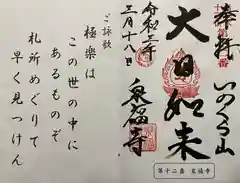 奉拝
いのくら山
大日如来
泉福寺
令和三年
三月十八日
第十二番 泉福寺
ご詠歌
極楽は
この世の中に
あるものぞ
札所めぐりて
早く見つけん